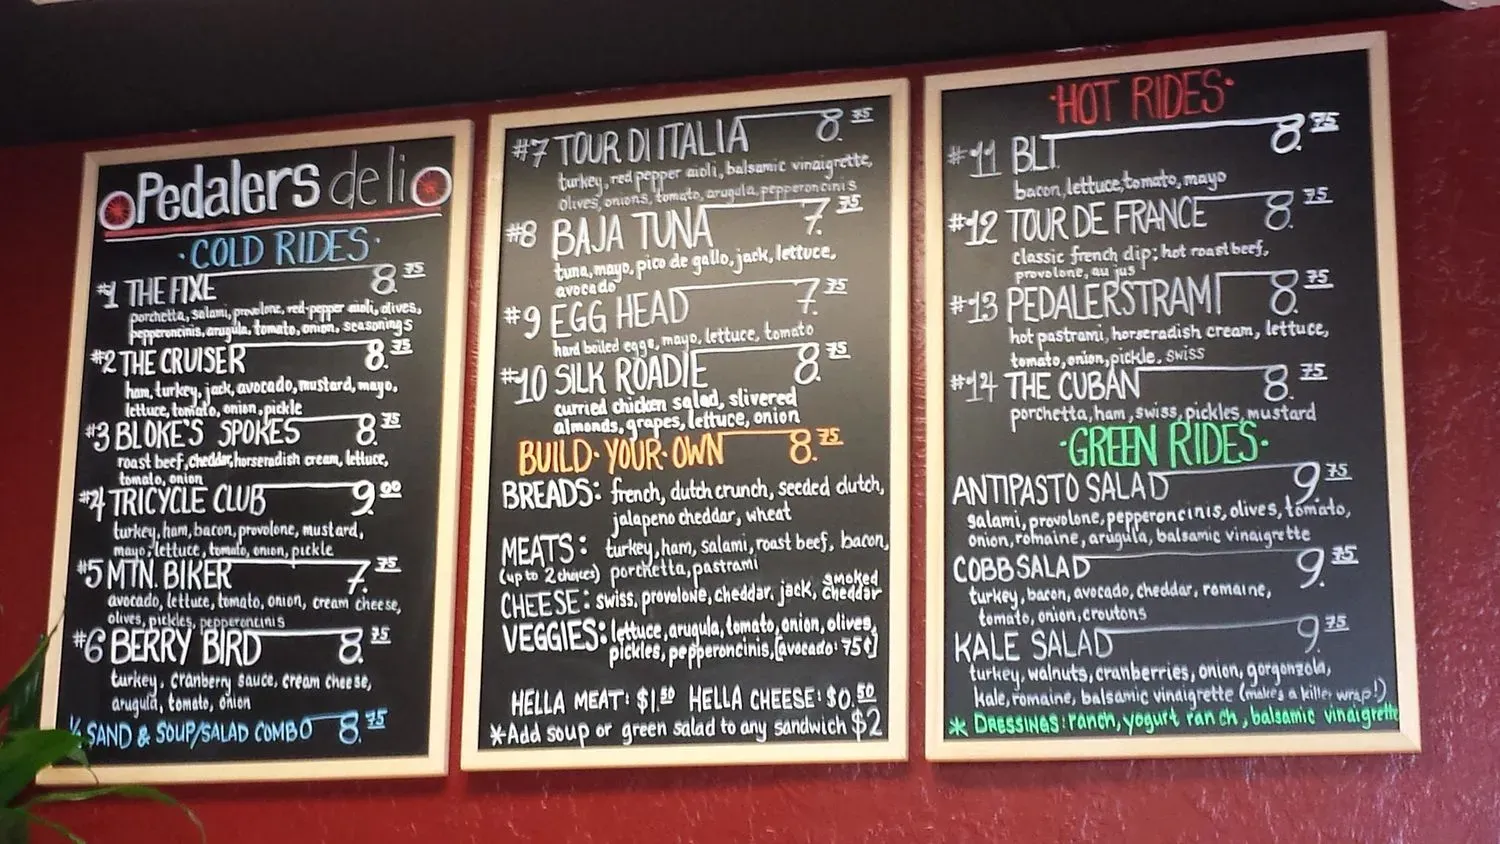 Pedalers deli
·COLD RIDES·
#1 THE FIXE 8.75
porchetta, salami, provolone, red-pepper aioli, olives,
pepperoncinis, arugula, tomato, onion, seasonings
#2 THE CRUISER 8.75
ham, turkey, jack, avocado, mustard, mayo,
lettuce, tomato, onion, pickle
#3 BLOKE'S SPOKES 8.75
roast beef, cheddar, horseradish cream, lettuce,
tomato, onion
#4 TRICYCLE CLUB 9.00
turkey, ham, bacon, provolone, mustard,
mayo, lettuce, tomato, onion, pickle
#5 MTN. BIKER 7.75
avocado, lettuce, tomato, onion, cream cheese,
olives, pickles, pepperoncinis
#6 BERRY BIRD 8.75
turkey, cranberry sauce, cream cheese,
arugula, tomato, onion
½ SAND & SOUP/SALAD COMBO 8.75
#7 TOUR DI ITALIA 8.75
turkey, red pepper aioli, balsamic vinaigrette,
olives, onions, tomato, arugula, pepperoncinis
#8 BAJA TUNA 7.75
tuna, mayo, pico de gallo, jack, lettuce,
avocado
#9 EGG HEAD 7.75
hard boiled eggs, mayo, lettuce, tomato
#10 SILK ROADIE 8.75
curried chicken salad, slivered
almonds, grapes, lettuce, onion
BUILD·YOUR·OWN 8.75
BREADS: french, dutch crunch, seeded dutch,
jalapeno cheddar, wheat
MEATS: turkey, ham, salami, roast beef, bacon,
(up to 2 choices) porchetta, pastrami
CHEESE: swiss, provolone, cheddar, jack, smoked cheddar
VEGGIES: lettuce, arugula, tomato, onion, olives,
pickles, pepperoncinis, [avocado: 75¢]
HELLA MEAT: $1.50 HELLA CHEESE: $0.50
*Add soup or green salad to any sandwich $2
·HOT RIDES·
#11 BLT 8.75
bacon, lettuce, tomato, mayo
#12 TOUR DE FRANCE 8.75
classic french dip; hot roast beef,
provolone, au jus
#13 PEDALERSTRAMI 8.75
hot pastrami, horseradish cream, lettuce,
tomato, onion, pickle, swiss
#14 THE CUBAN 8.75
porchetta, ham, swiss, pickles, mustard
·GREEN RIDES·
ANTIPASTO SALAD 9.75
salami, provolone, pepperoncinis, olives, tomato,
onion, romaine, arugula, balsamic vinaigrette
COBB SALAD 9.75
turkey, bacon, avocado, cheddar, romaine,
tomato, onion, croutons
KALE SALAD 9.75
turkey, walnuts, cranberries, onion, gorgonzola,
kale, romaine, balsamic vinaigrette (makes a killer wrap!)
* DRESSINGS: ranch, yogurt ranch, balsamic vinaigrette